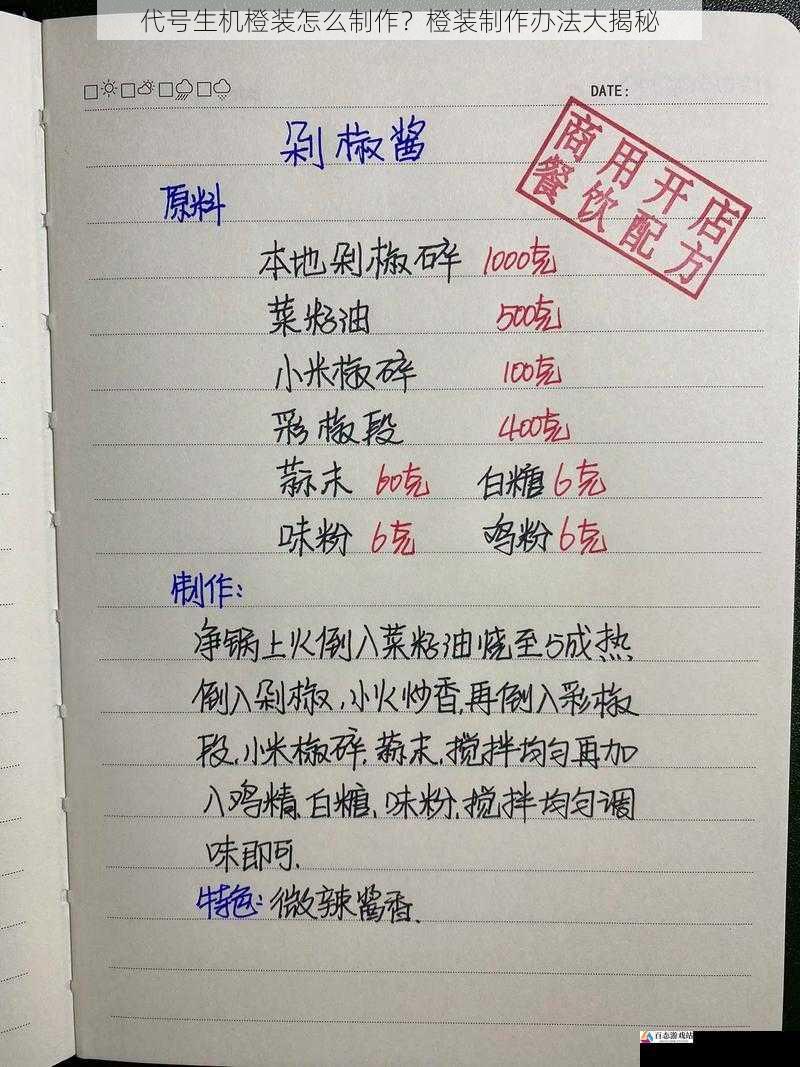 代号生机橙装怎么制作？橙装制作办法大揭秘
DATE:
商用开店
餐饮配方
剁椒酱
原料
本地剁椒碎 1000克
菜籽油 500克
小米椒碎 100克
彩椒段 400克
蒜末 60克 白糖 6克
味粉 6克 鸡粉 6克
制作:
净锅上火倒入菜籽油烧至5成热
倒入剁椒,小火炒香,再倒入彩椒
段,小米椒碎,蒜末,搅拌均匀再加
入鸡精,白糖,味粉,搅拌均匀调
味即可.
特色:微辣酱香.
百态游戏站